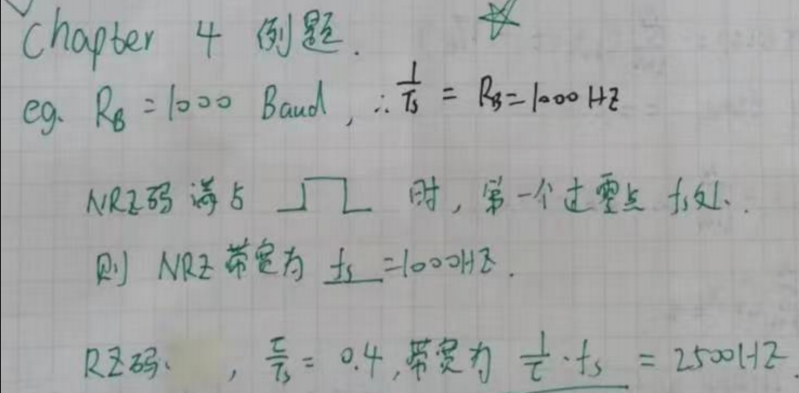 Chapter 4 例题.
eg. R_B = 1000 Baud, ∴ 1/Ts = R_B = 1000HZ
NRZ码 满占 时, 第一个过零点 fs处.
则 NRZ带宽为 fs = 1000HZ.
RZ码. , τ/Ts = 0.4, 带宽为 1/τ · fs = 2500HZ.